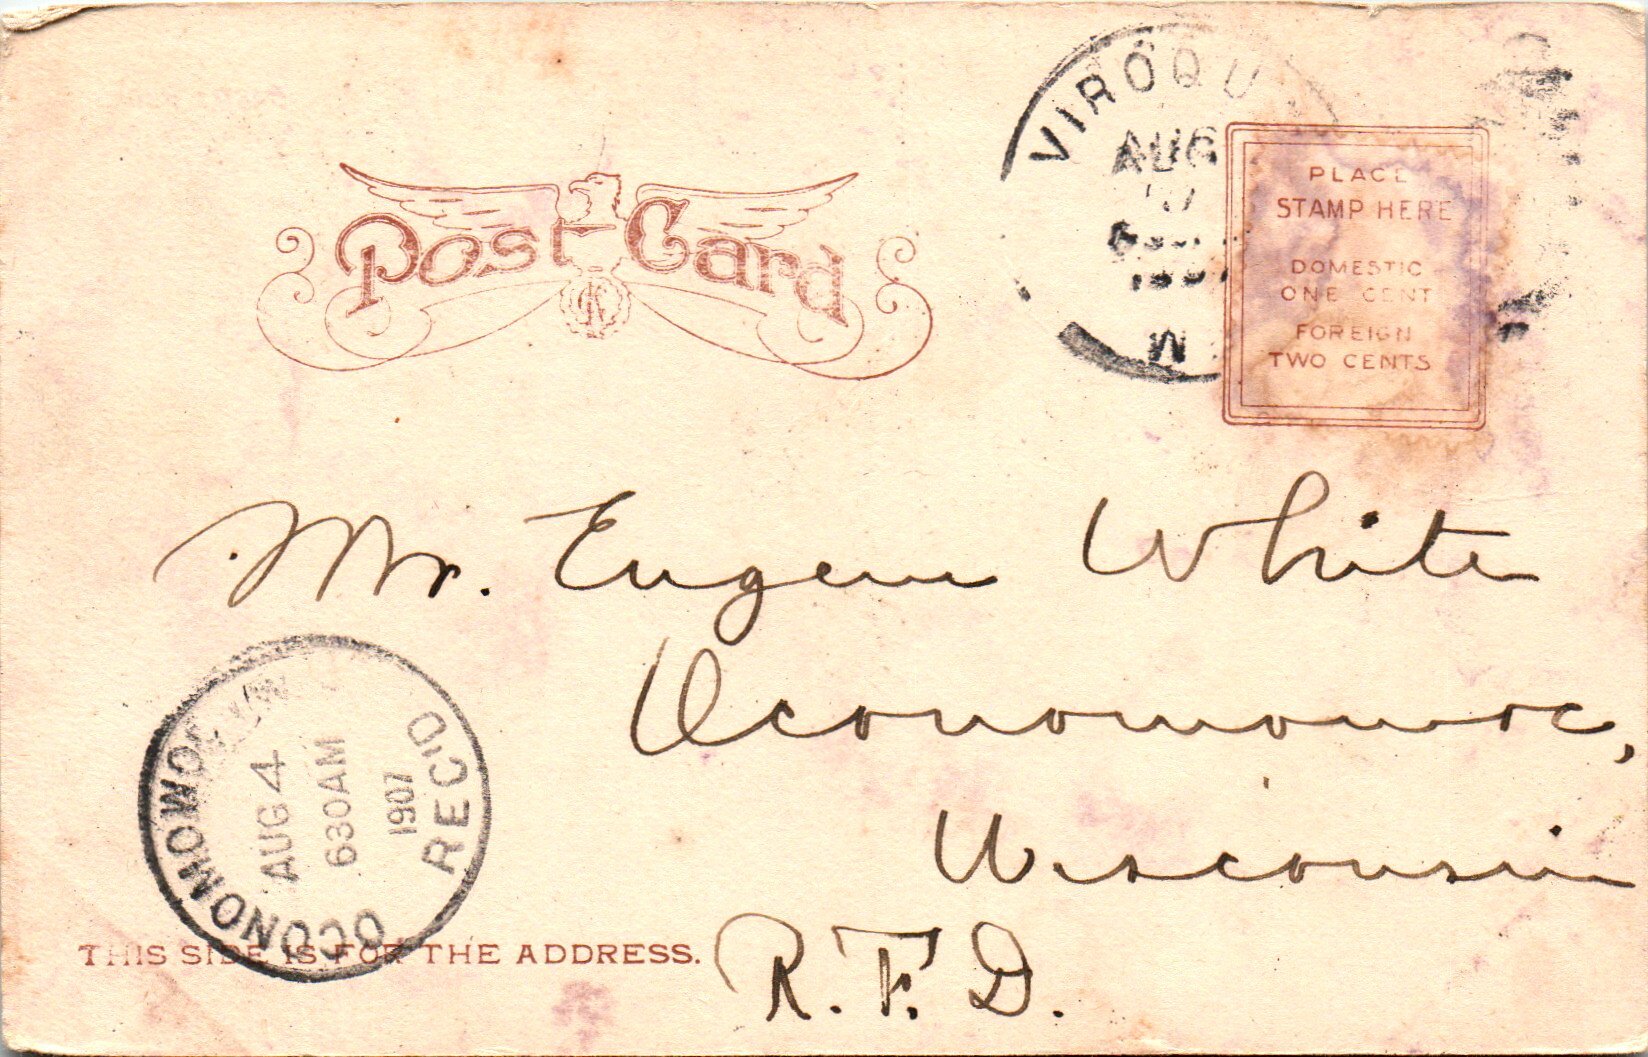 Post Card
VIROQU
AUG
1907
W
PLACE
STAMP HERE
DOMESTIC
ONE CENT
FOREIGN
TWO CENTS
Mr. Eugene White
Oconomowoc,
Wisconsin
R.F.D.
OCONOMOWOC, WIS.
AUG 4
630AM
1907
REC'D
THIS SIDE IS FOR THE ADDRESS.